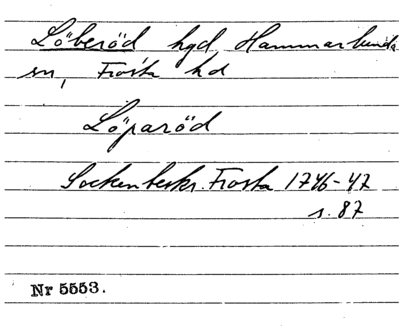 Löberöd hgd, Hammarlunda
sn, Frosta hd
Löparöd
Sockenbeskr. Frosta 1746-47
s. 87
Nr 5553.